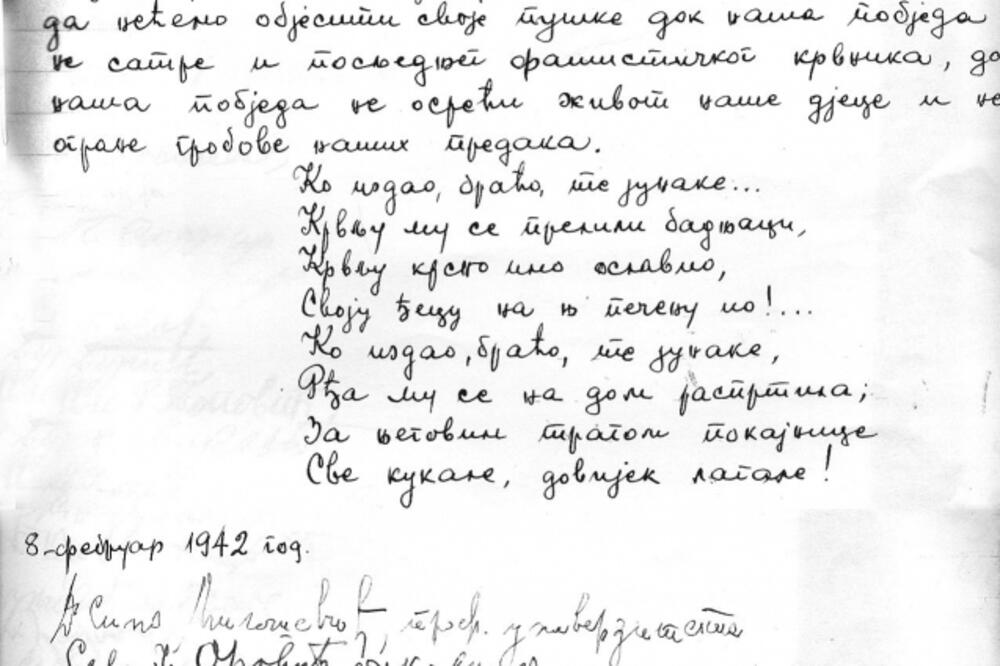 да нећемо објесити своје пушке док наша побједа
не сатре и посљедњег фашистичког крвника, до
наша побједа не осрећи живот наше дјеце и не
огране гробове наших предака.
Ко издао, браћо, те јунаке...
Крвљу му се прелили бадњаци,
Крвљу крсно име ославио,
Своју ђецу на њ печену ио!...
Ко издао, браћо, те јунаке,
Рђа му се на дом распртила;
За његовим трагом покајнице
Све кукале, довијек лагале!
8-фебруар 1942 год.
проф. универзитета